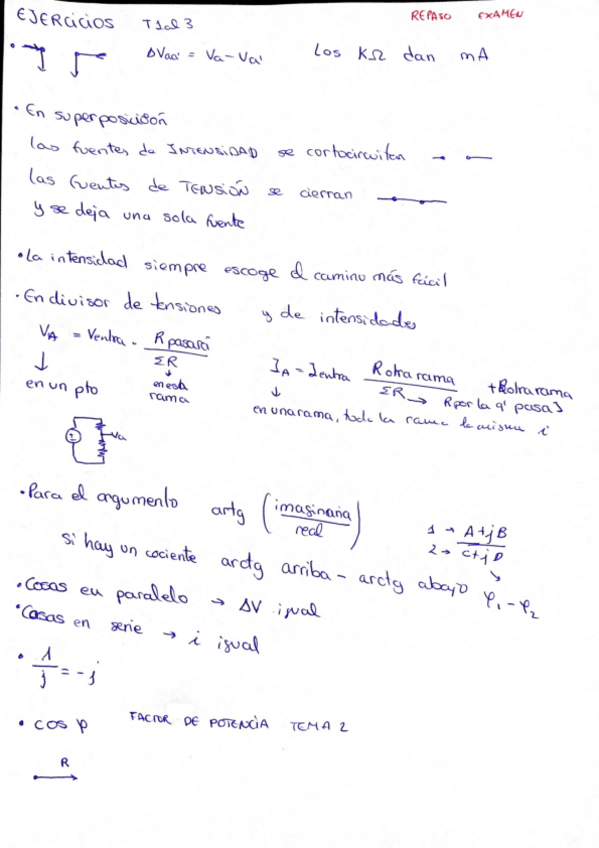 EJERCICIOS T1 al 3
REPASO EXAMEN
• ΔVaa' = Va - Va' Los KΩ dan mA
• En superposición
las fuentes de INTENSIDAD se cortocircuitan
las fuentes de TENSIÓN se cierran
y se deja una sola fuente
• La intensidad siempre escoge el camino más fácil
• En divisor de tensiones y de intensidades
V_A = Ventra · R pasará / ΣR
↓ ↓
en un pto en esta rama
I_A = Ientra Rotra rama / ΣR → Rpor la q' pasa + Rotra rama
↓
en una rama, toda la rama la misma i
Va
• Para el argumento artg (imaginaria / real)
si hay un cociente arctg arriba - arctg abajo φ₁ - φ₂
1 → A+jB
2 → C+jD
• Cosas en paralelo → ΔV igual
• Cosas en serie → i igual
• 1/j = -j
• cos φ FACTOR DE POTENCIA TEMA 2
R